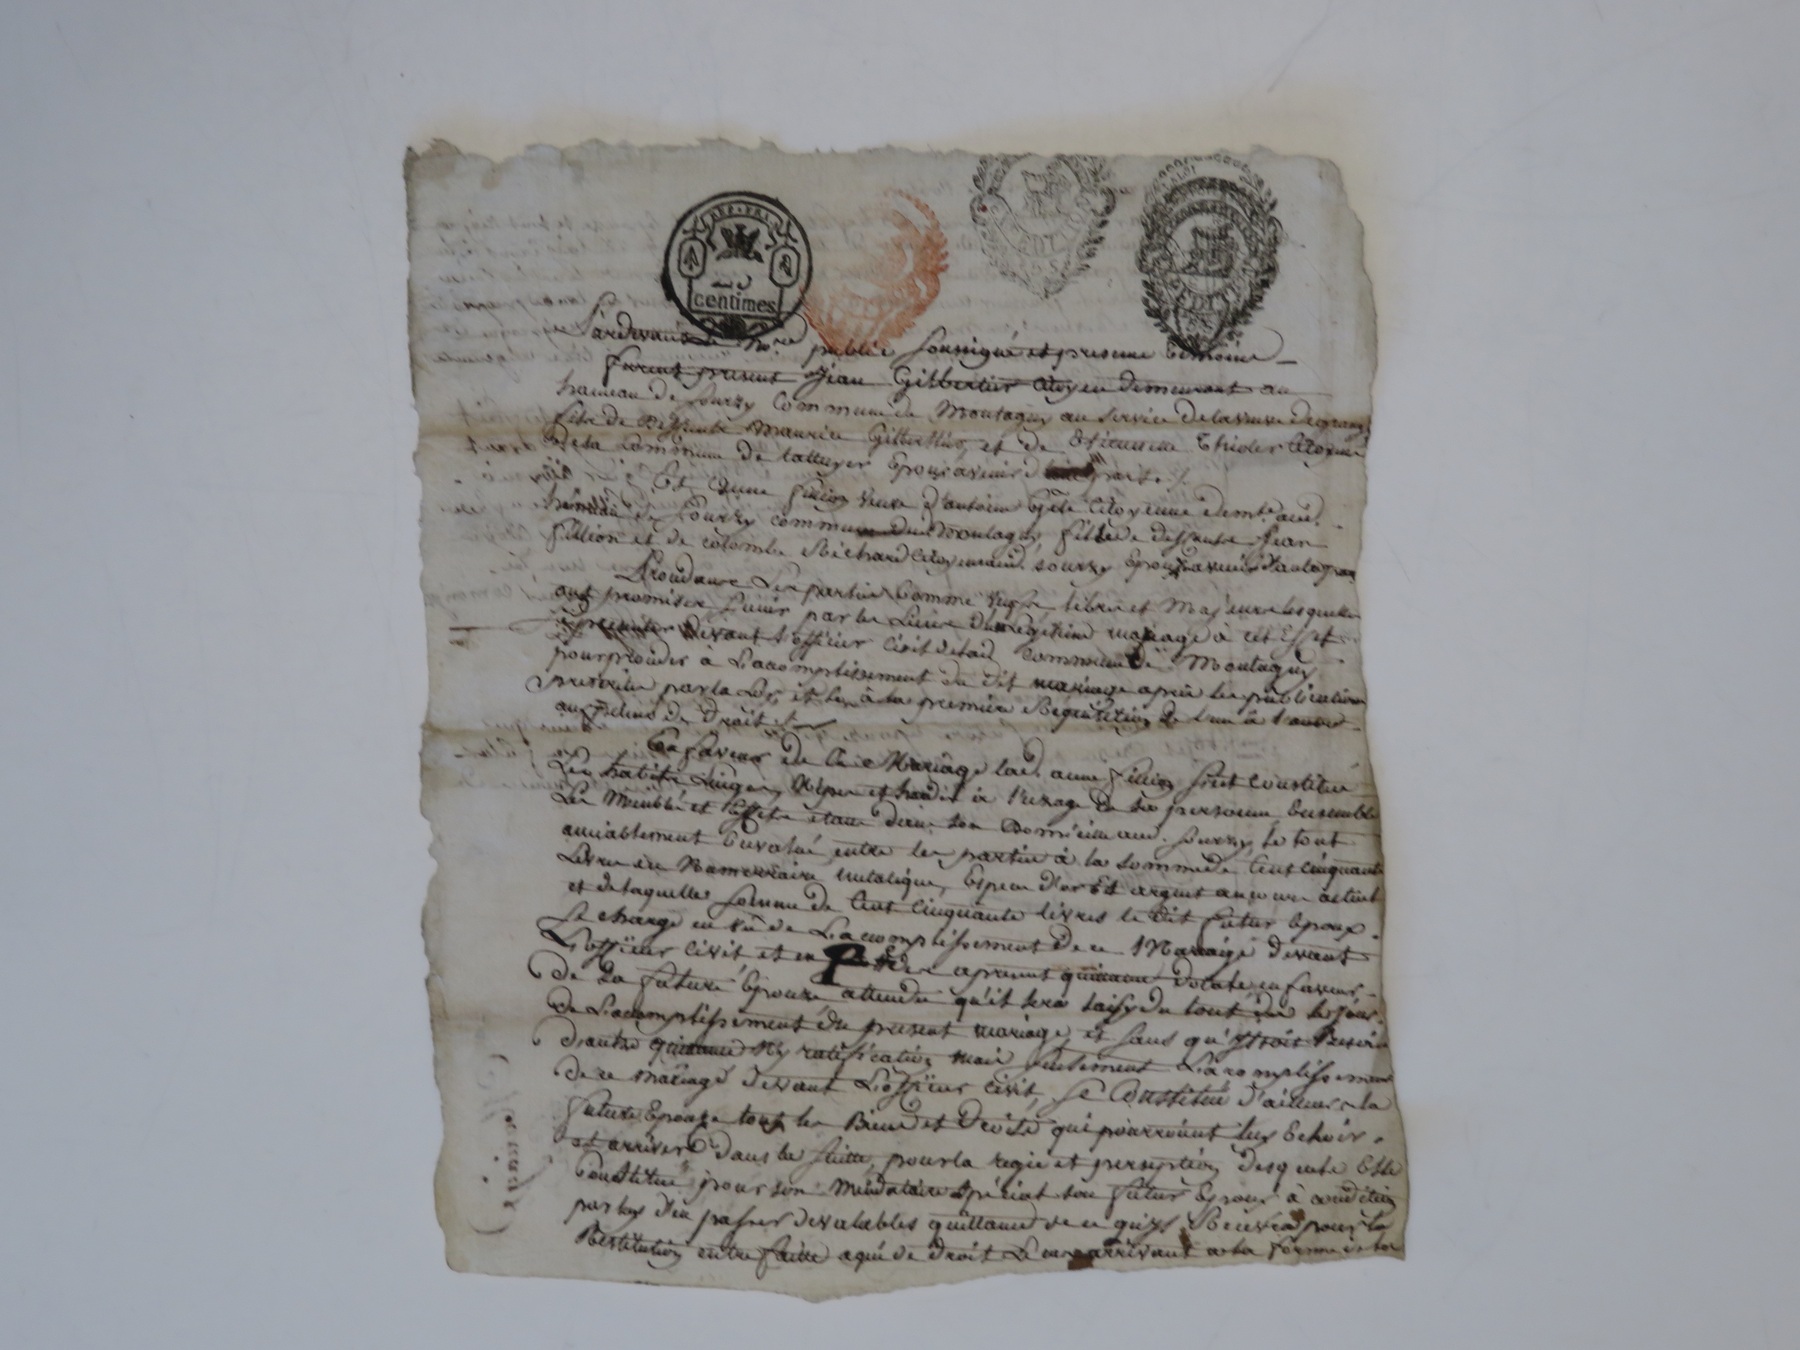 REP. FRA.
25
centimes
Pardevant le No.re public soussigné et presence temoins
furent present Jean Gilbertier Citoyen demeurant au
hameau de Sourzy Commune de Montagny au service de la veuve
fils de Deffunt Maurice Gilbertier, et de Thioler Citoyenne
de la Commune de epoux avenir d'une part ./.
Et anne fillion veuve d'antoine Citoyenne demte. aud.
hameau de Sourzy commune de Montagny, fille de deffunt Jean
fillion et de colombe Richard Citoyen aud. sourzy Epouze avenir d'autre part
Lesquelles Parties comme libre et Majeure lesquelles
ont promises s'unir par les Liens du legitime mariage à cet Effet
se presenter devant l'officier Civil de lad. commune de Montagny
pour proceder à L'acomplissement du dit mariage après les publications
prescrites par la Loy, et ce à la premiere Requisition de l'un à l'autre
aux peines de Droit ./.
En faveur de Ce Mariage lad. anne fillion s'est Constitué
Les habits Linges, Nipes et hardes à l'uzage de sa personne Ensemble
Les Meubles et Effets etant dans son Domicille aud. Sourzy, le tout
amiablement Evalué entre les parties à la somme de Cent cinquante
Livres en Numeraire metalique, Espece d'or Et argent ancien
et de laquelle somme de Cent cinquante livres le dit futur Epoux
se charge en vû de L'acomplissement de ce Mariage devant
L'officier Civil et en apresent quittance Dotale, en faveur
de La future Epouze attendu qu'il sera saisy du tout des le Jour
de L'acomplissement du present mariage, et sans qu'il soit Besoin
d'autre quittance Ny ratification mais seulement L'acomplissement
de ce mariage devant L'officier Civil, se Constitue d'ailleurs la
future Epouze tous les Biens et Droits qui pourroient luy Echoir
et arriver dans la suitte, pour la regie et perception desquels Elle
Constitue pour son Mandataire Spécial son futur Epoux à condition
par luy d'en passer de valables quittances de ce qu'il Recevra pour la
Restitution entre faitte a qui de droit Le cas arrivant a la forme de la